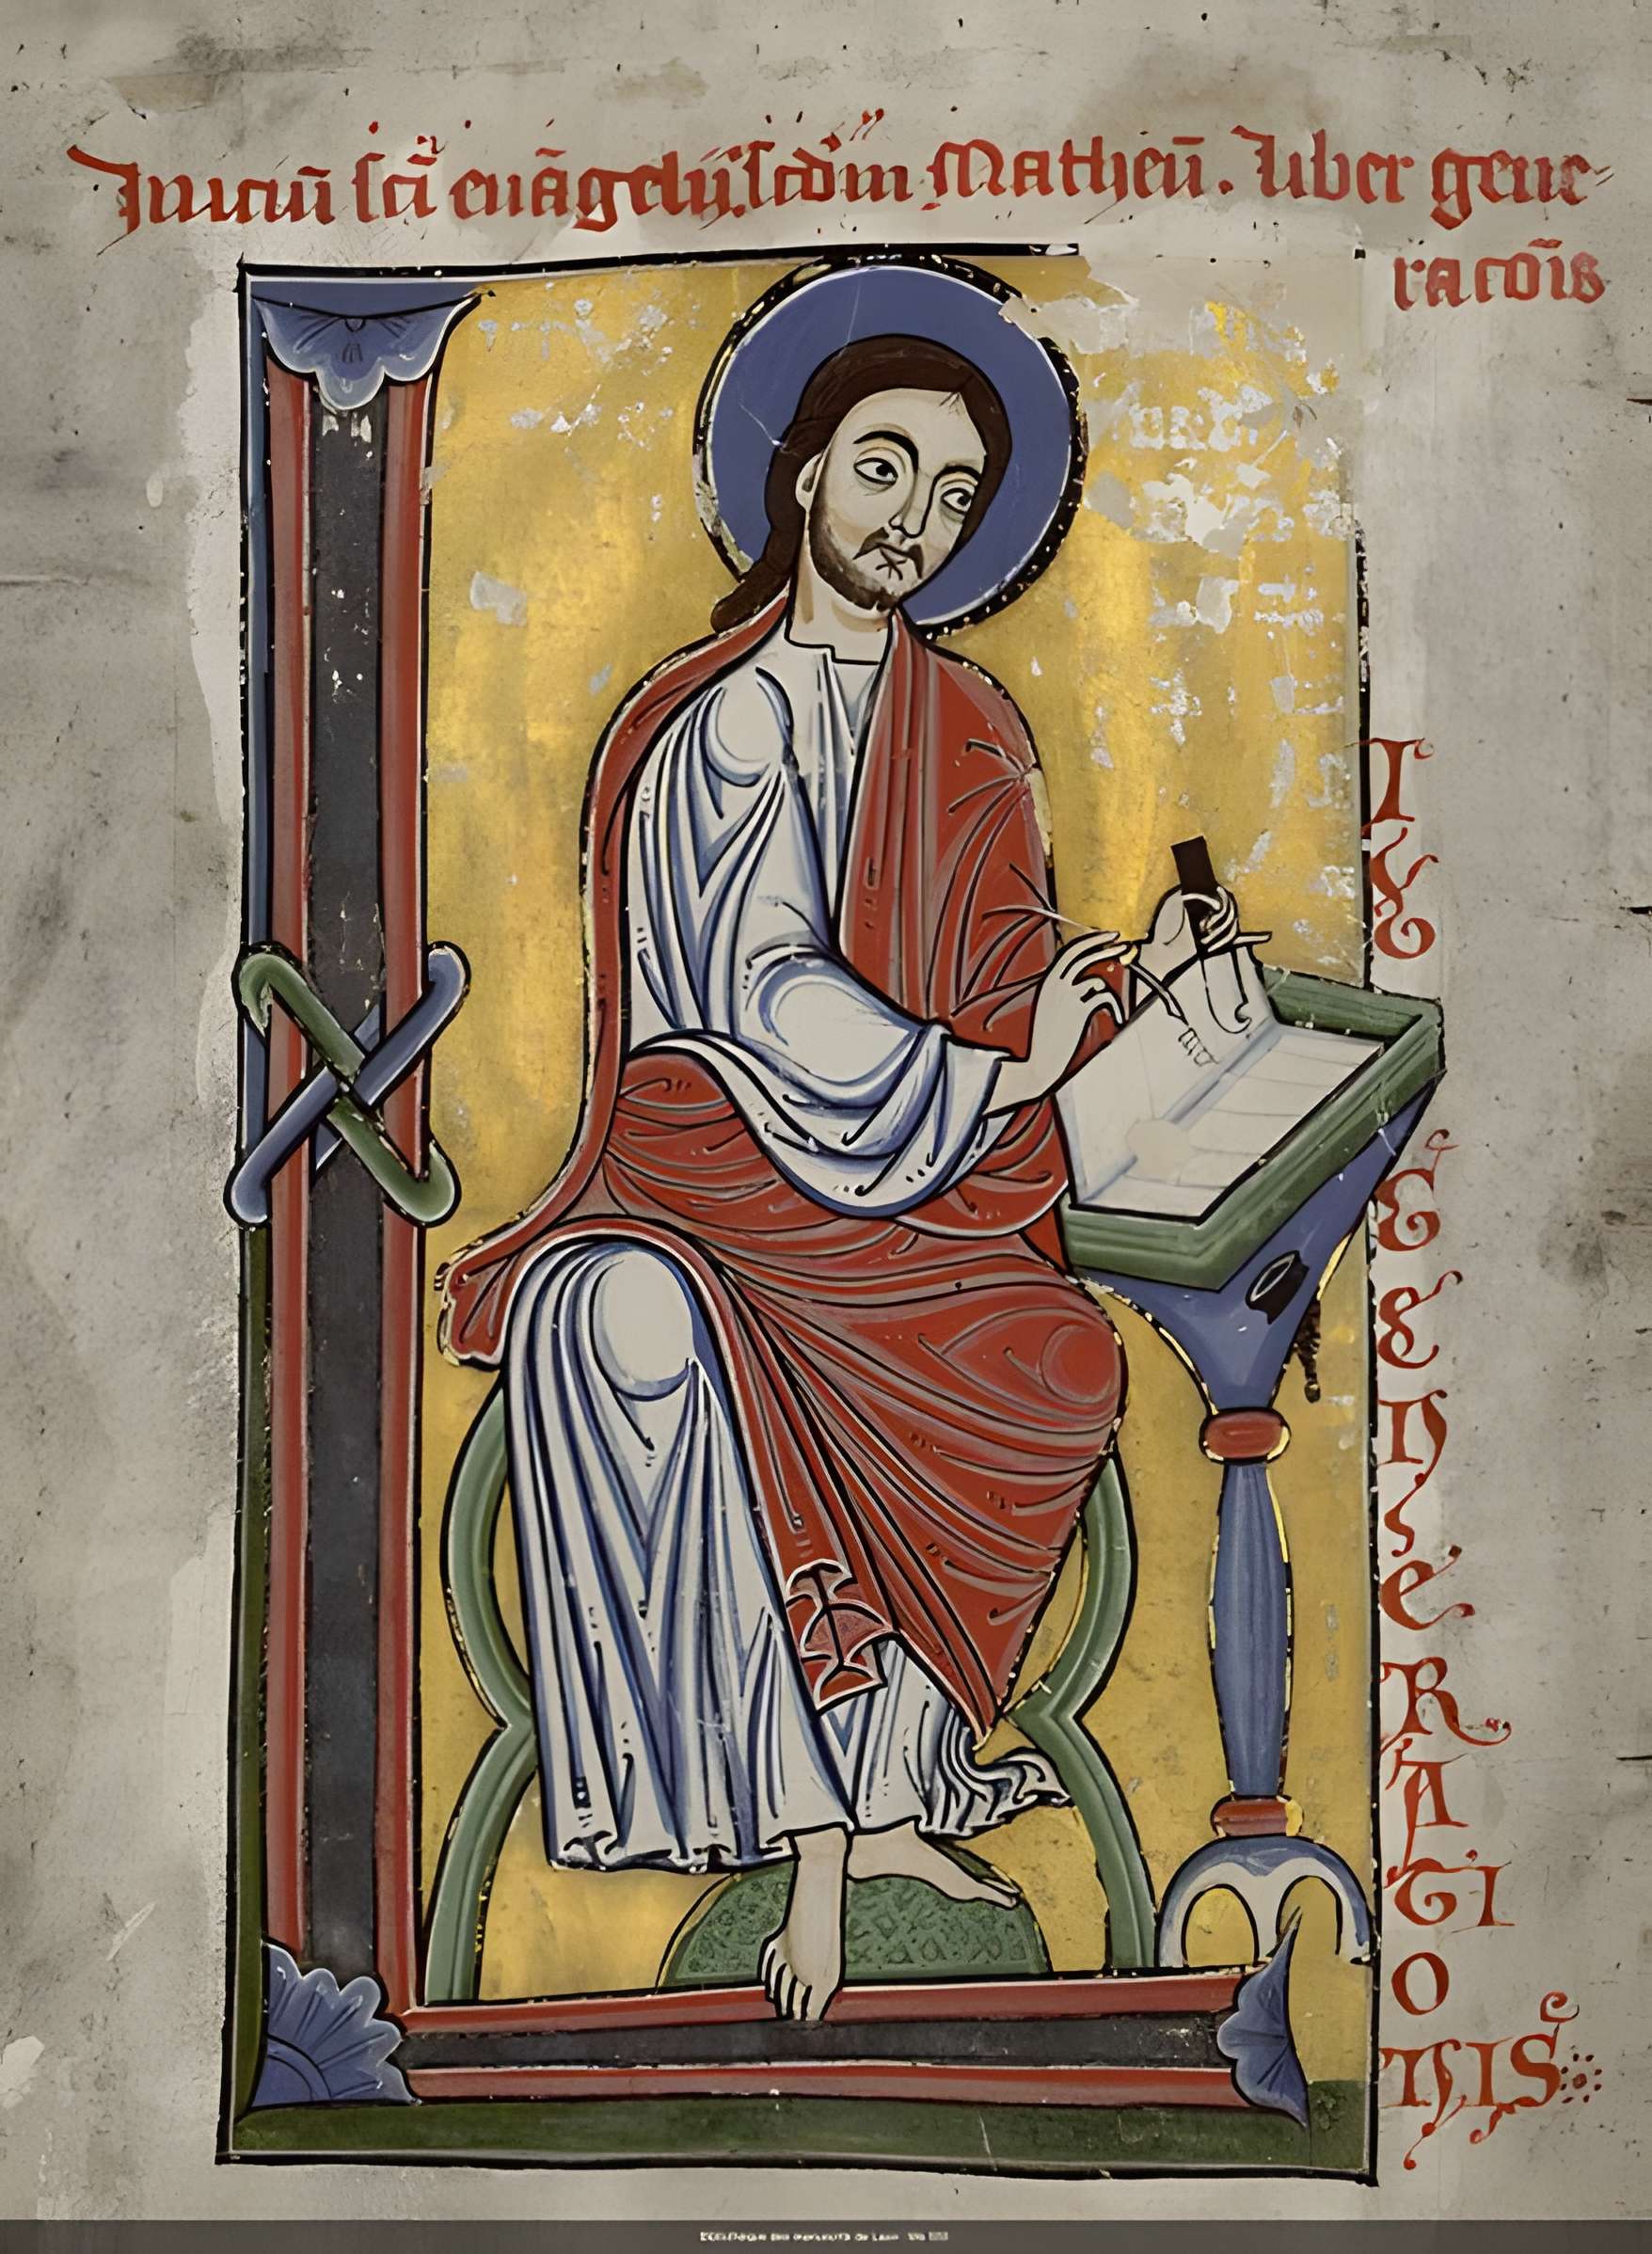 Iniciū sci euāgelij scdm Matheū. Liber gene-
racōis
L
I
B
E
R
GENERATIONIS